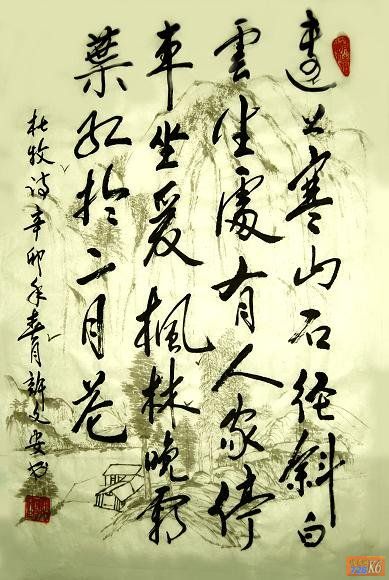 遠上寒山石徑斜白
雲生處有人家停
車坐愛楓林晚霜
葉紅於二月花
杜牧詩辛卯年春月許文安書